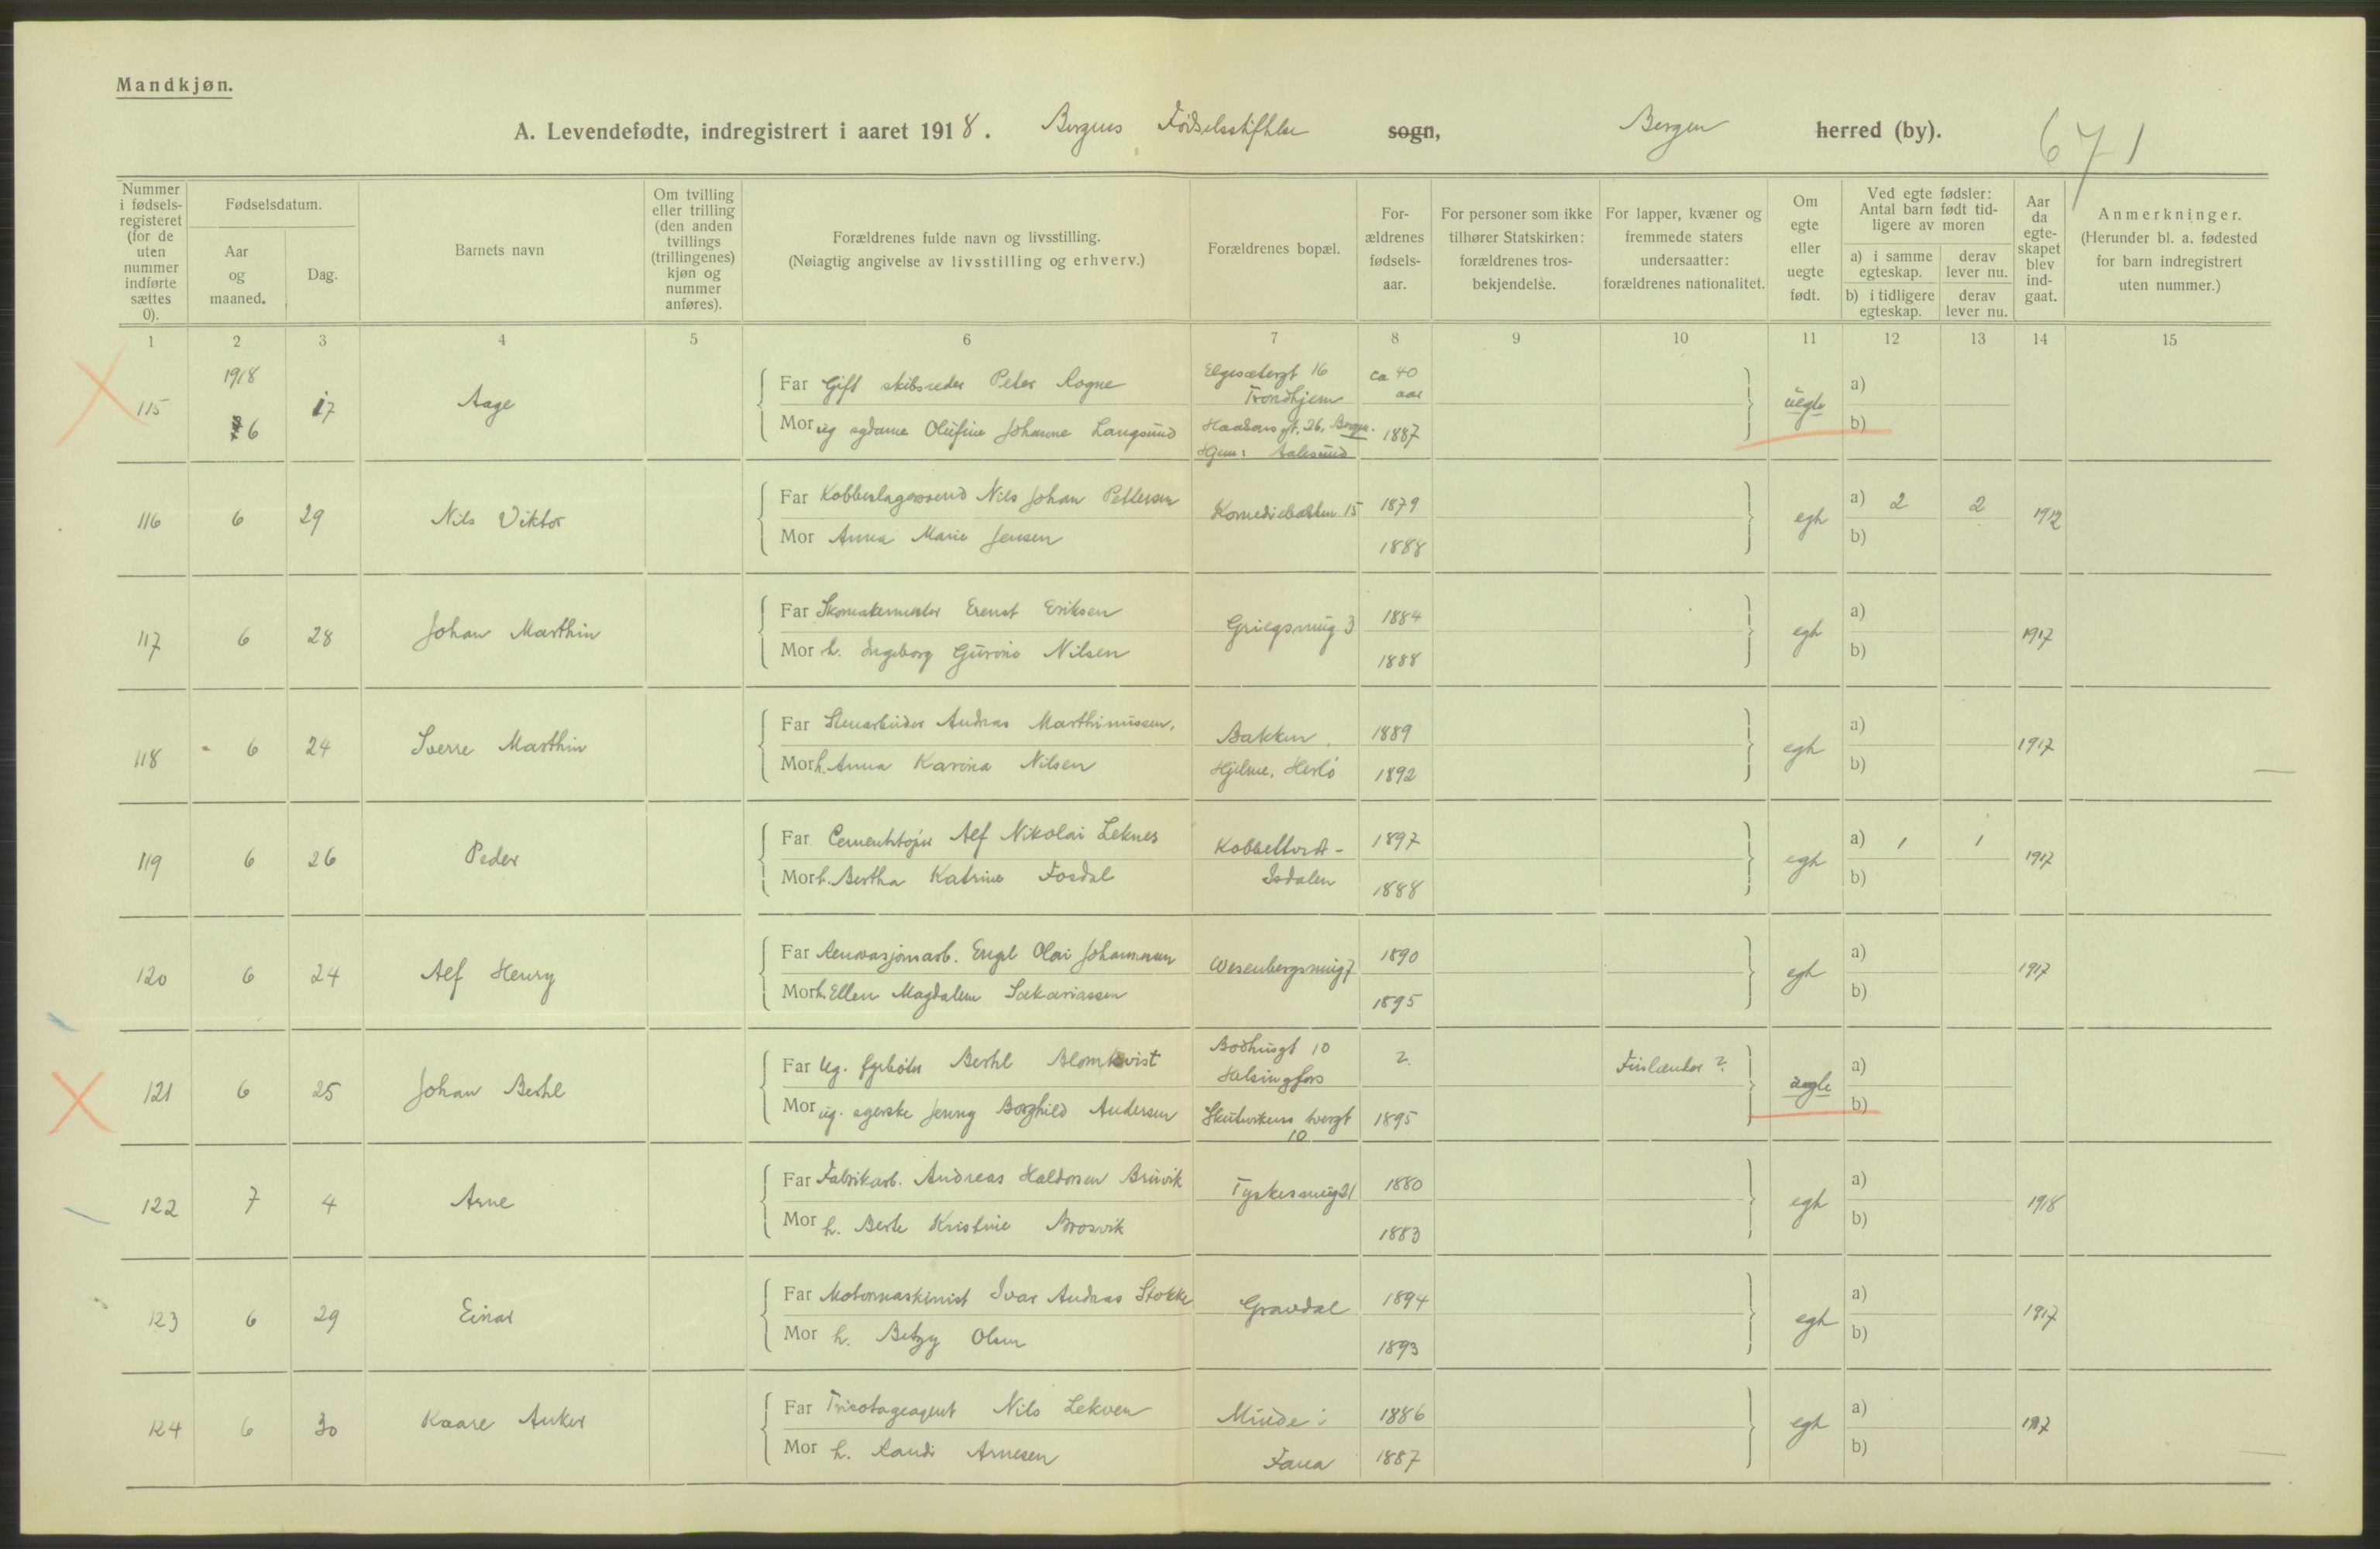 Mandkjøn.
A. Levendefødte, indregistrert i aaret 1918. Bergens Fødselsstiftelse sogn, Bergen herred (by). 671
Nummer i fødsels-registeret (for de uten nummer indførte sættes 0).
Fødselsdatum.
Aar og maaned.
Dag.
Barnets navn
Om tvilling eller trilling (den anden tvillings (trillingenes) kjøn og nummer anføres).
Forældrenes fulde navn og livsstilling.
(Nøiagtig angivelse av livsstilling og erhverv.)
Forældrenes bopæl.
For-ældrenes fødsels-aar.
For personer som ikke tilhører Statskirken: forældrenes tros-bekjendelse.
For lapper, kvæner og fremmede staters undersaatter: forældrenes nationalitet.
Om egte eller uegte født.
Ved egte fødsler: Antal barn født tid-ligere av moren
a) i samme egteskap.
derav lever nu.
b) i tidligere egteskap.
derav lever nu.
Aar da egte-skapet blev ind-gaat.
Anmerkninger.
(Herunder bl. a. fødested for barn indregistrert uten nummer.)
1 2 3 4 5 6 7 8 9 10 11 12 13 14 15
1918
115 6 17 Aage
Far Gift skibsreder Peter Rogne Elgesætergt 16 Trondhjem ca 40 aar
Mor ug sydame Olufine Johanne Langsund 26, Bergen. 1887
Hjem: Aalesund
uegte a) b)
116 6 29 Nils Viktor
Far Kobberslagersvend Nils Johan Pettersen Komediebakken 15 1879
Mor Anna Marie Jensen 1888
egte a) 2 2 b) 1912
117 6 28 Johan Marthin
Far Skomakermester Ernst Eriksen Griegsmug 3 1884
Mor h. Ingeborg Gurine Nilsen 1888
egte a) b) 1917
118 6 24 Sverre Marthin
Far Stenarbeider Andreas Marthinussen, Bakken, 1889
Mor h. Anna Karina Nilsen Hjelme, Herlø 1892
egte a) b) 1917
119 6 26 Peder
Far Cementstøper Alf Nikolai Leknes Isdalen 1897
Mor h. Bertha Katrine Fosdal 1888
egte a) 1 1 b) 1917
120 6 24 Alf Henry
Far Renovasjonsarb. Engel Olai Johannesen Wesenbergsmug 7 1890
Mor h. Ellen Magdalene Sakariassen 1895
egte a) b) 1917
121 6 25 Johan Bertil
Far Ug. fyrbøter Bertil Blomkvist Bodhusgt 10 Helsingfors ? Finlænder ?
Mor ug. syerske Jenny Borghild Andersen Skuteviken tvergt 10 1895
uegte a) b)
122 7 4 Arne
Far Fabrikarb. Andreas Haldorsen Bruvik Tyskesmug 21 1880
Mor h. Berte Kristine Brosvik 1883
egte a) b) 1918
123 6 29 Einar
Far Motormaskinist Ivar Andreas Stokke Gravdal 1894
Mor h. Betzy Olsen 1893
egte a) b) 1917
124 6 30 Kaare Anker
Far Tricotageagent Nils Lekven Minde i 1886
Mor h. Randi Arnesen Fana 1887
egte a) b) 1917